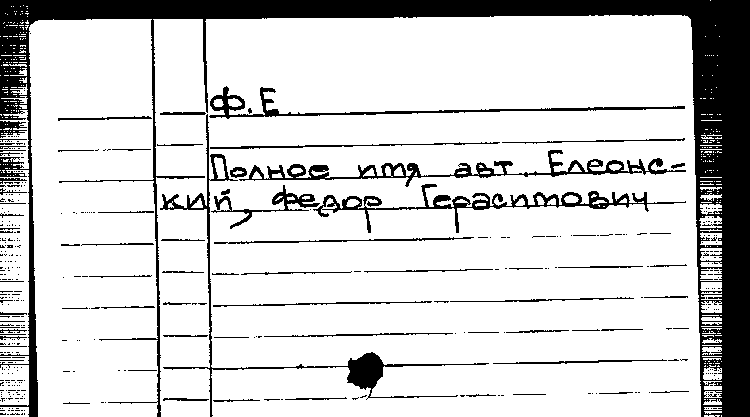 Ф. Е
Полное имя авт. Елеонс-
кий, Федор Герасимович